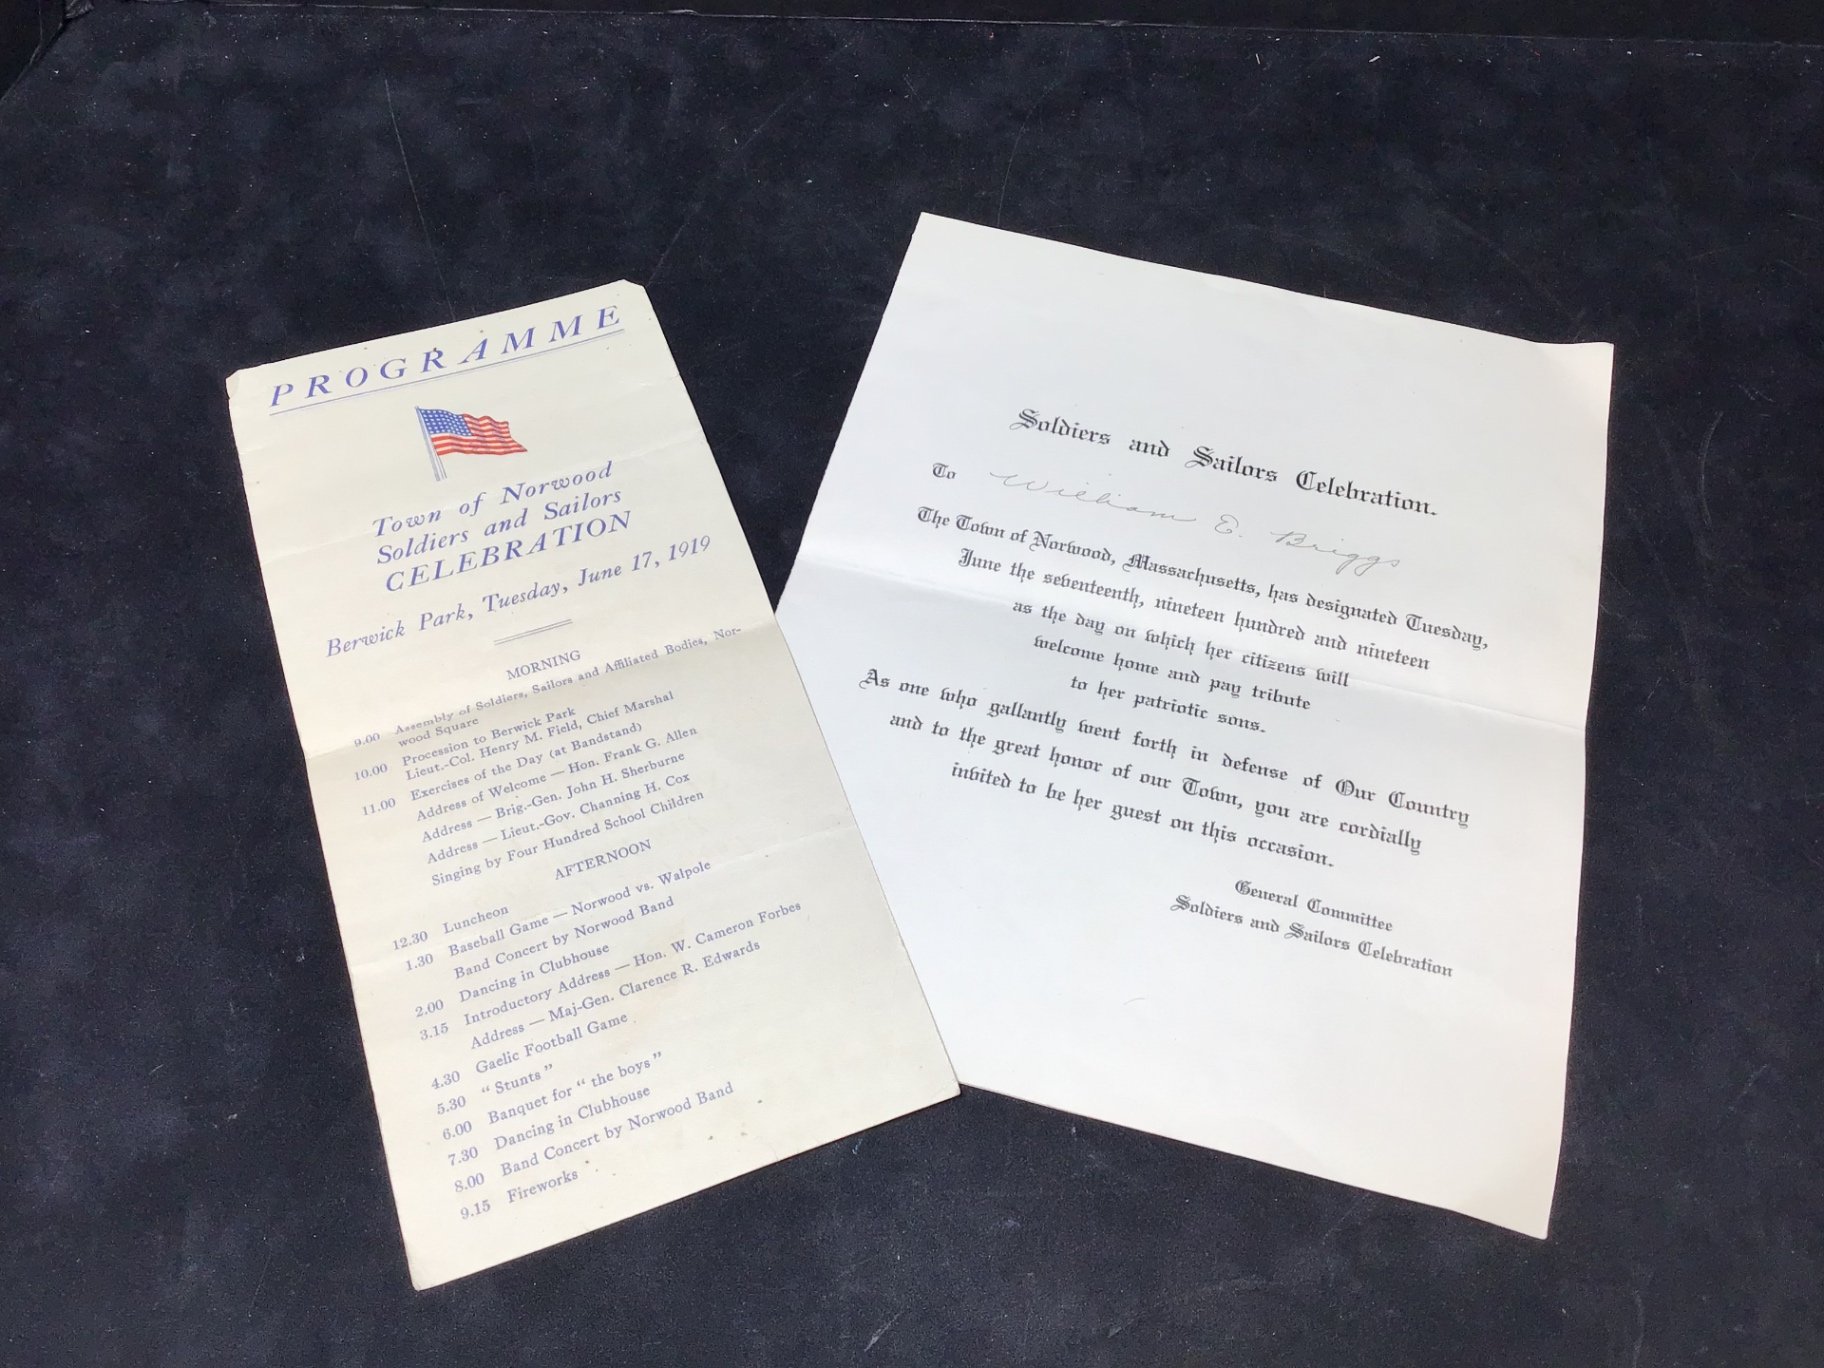 PROGRAMME
Town of Norwood
Soldiers and Sailors
CELEBRATION
Berwick Park, Tuesday, June 17, 1919
MORNING
9.00 Assembly of Soldiers, Sailors and Affiliated Bodies, Nor-
wood Square
10.00 Procession to Berwick Park
Lieut.-Col. Henry M. Field, Chief Marshal
11.00 Exercises of the Day (at Bandstand)
Address of Welcome — Hon. Frank G. Allen
Address — Brig.-Gen. John H. Sherburne
Address — Lieut.-Gov. Channing H. Cox
Singing by Four Hundred School Children
AFTERNOON
12.30 Luncheon
1.30 Baseball Game — Norwood vs. Walpole
Band Concert by Norwood Band
2.00 Dancing in Clubhouse
3.15 Introductory Address — Hon. W. Cameron Forbes
Address — Maj-Gen. Clarence R. Edwards
4.30 Gaelic Football Game
5.30 “ Stunts ”
6.00 Banquet for “ the boys ”
7.30 Dancing in Clubhouse
8.00 Band Concert by Norwood Band
9.15 Fireworks
Soldiers and Sailors Celebration.
To William E. Briggs
The Town of Norwood, Massachusetts, has designated Tuesday,
June the seventeenth, nineteen hundred and nineteen
as the day on which her citizens will
welcome home and pay tribute
to her patriotic sons.
As one who gallantly went forth in defense of Our Country
and to the great honor of our Town, you are cordially
invited to be her guest on this occasion.
General Committee
Soldiers and Sailors Celebration